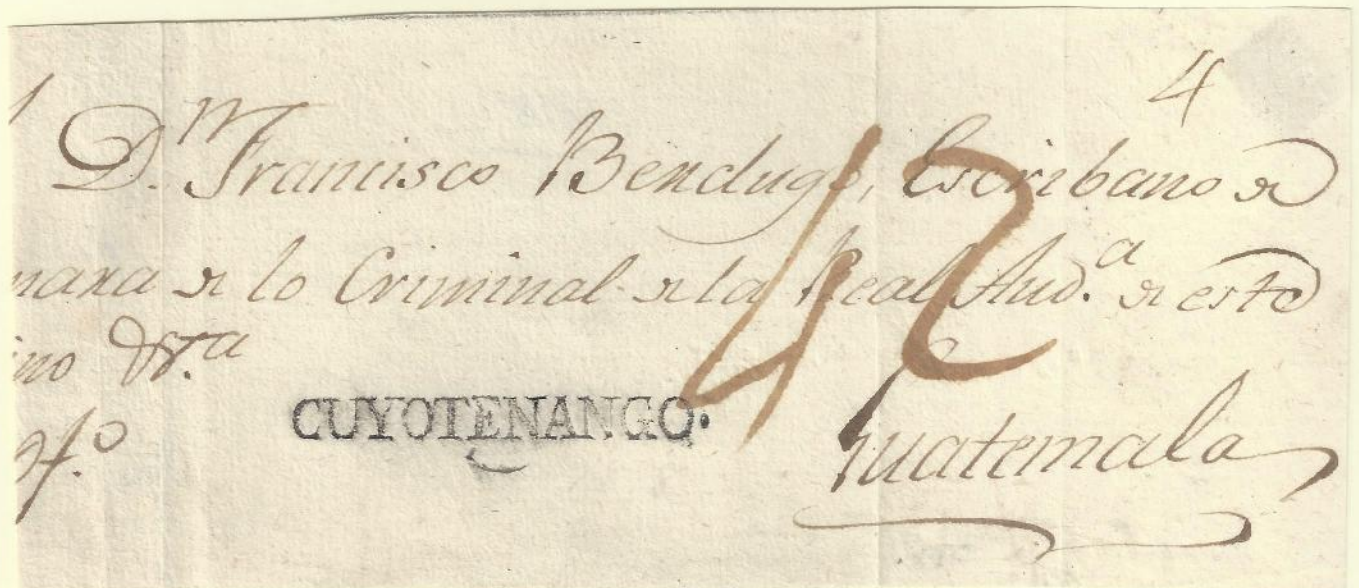 4
D.ⁿ Francisco Berdugo, Escribano de
mara de lo Criminal de la Real Aud.ª de este
ino &.ª
42
CUYOTENANGO.
Guatemala